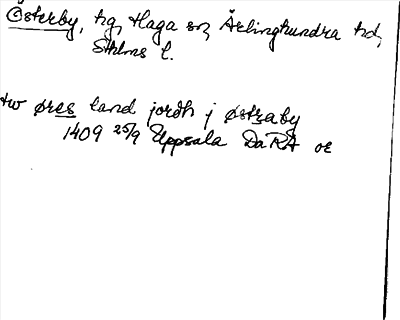 Österby, hg, Haga sn, Ärlinghundra hd,
Sthlms l.
tw øres land jordh j østraby
1409 25/9 Uppsala DaRA or